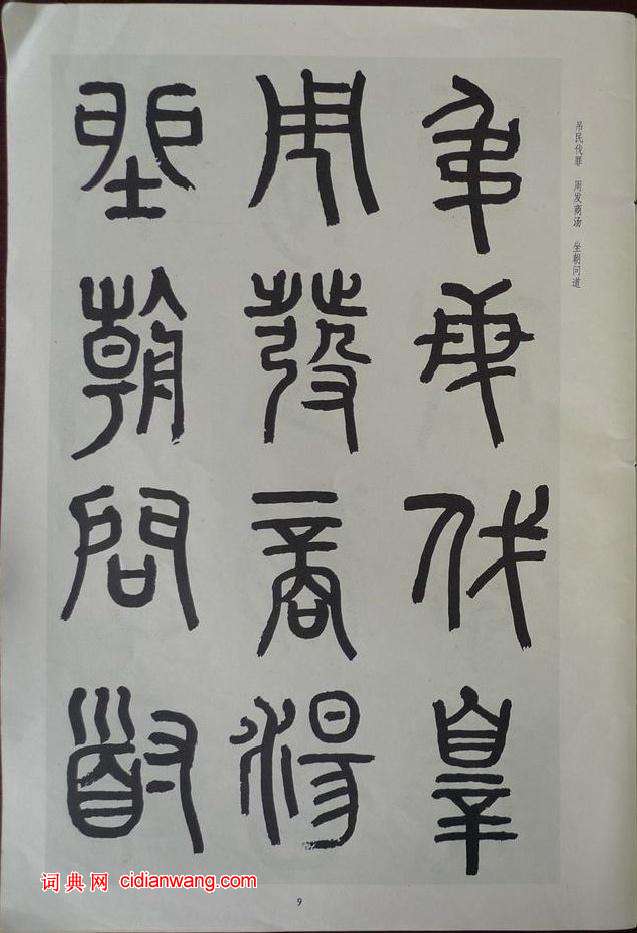 吊民伐罪 周发商汤 坐朝问道
弔民伐辠
周發商湯
坐朝問道
词典网 cidianwang.com
9